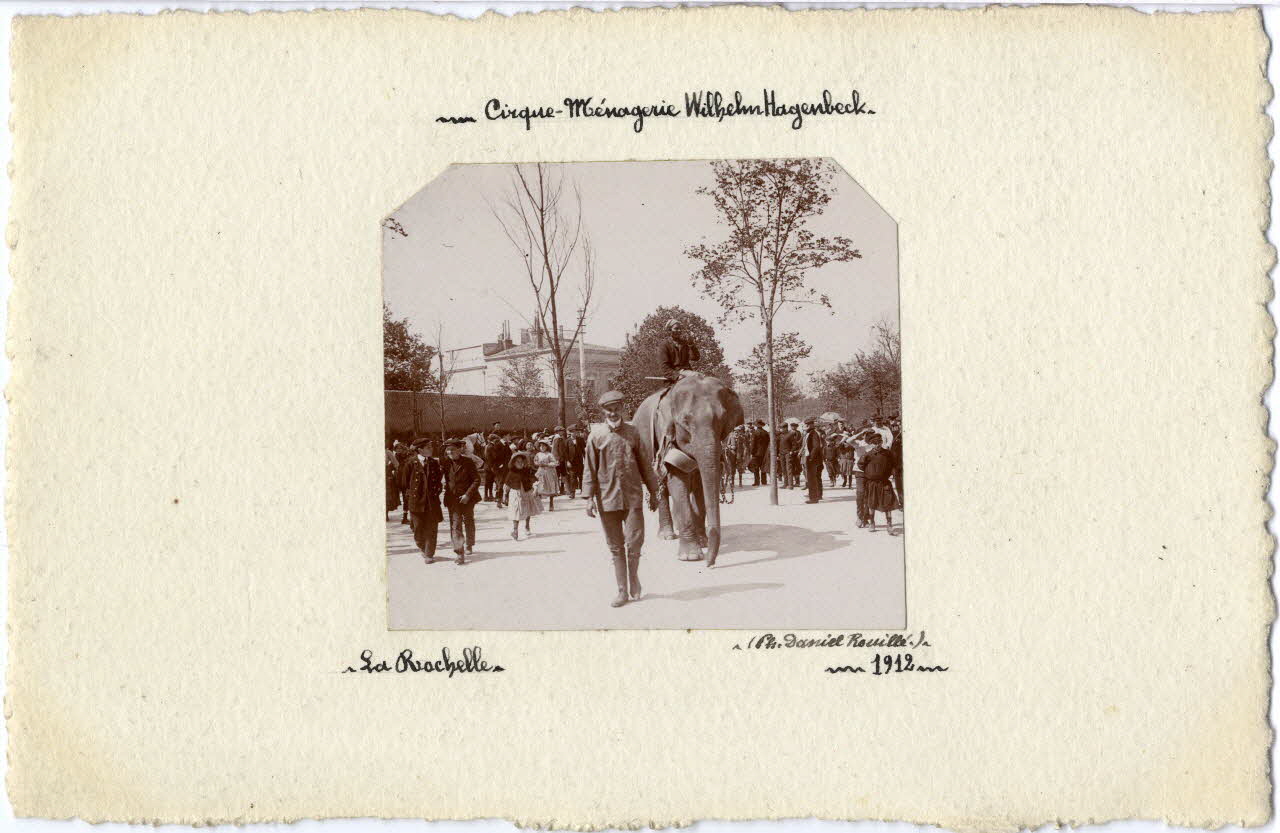 Cirque-Ménagerie Wilhelm Hagenbeck.
(Ph. Daniel Rouillé.)
La Rochelle
1912